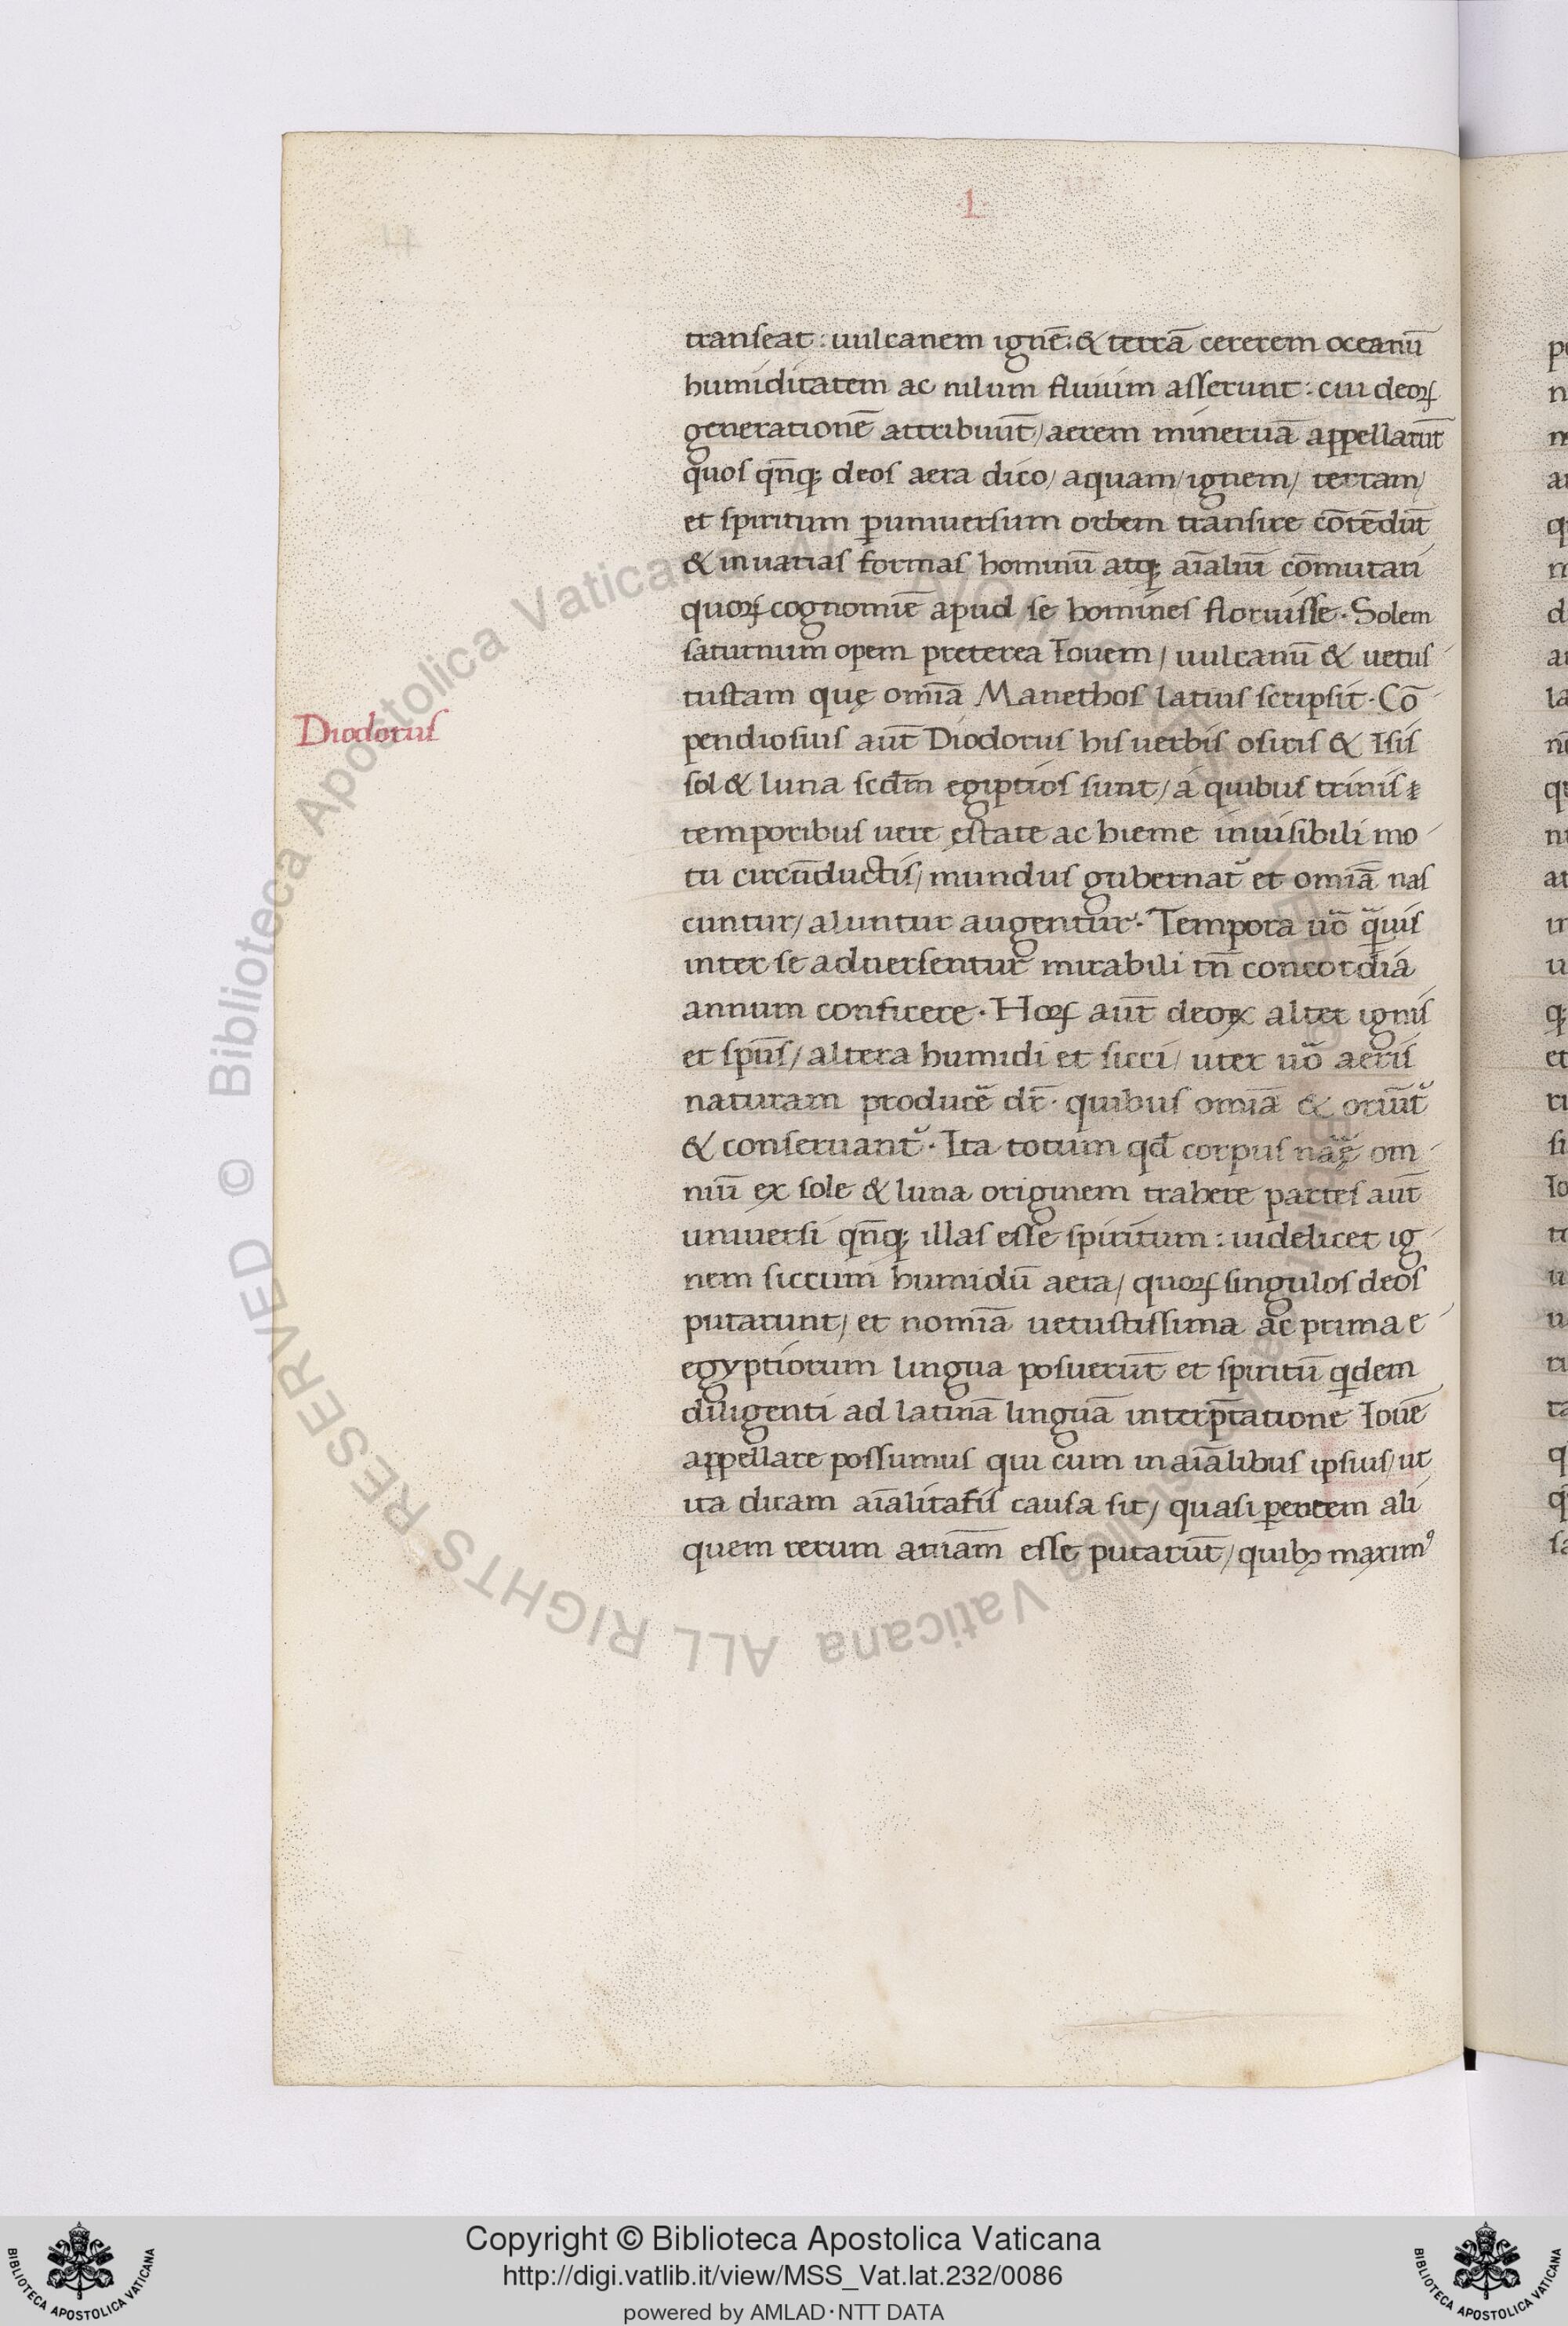 ·1·
transeat: uulcanem ignē: & terrā cererem oceanū
humiditatem ac nilum fluuium asserunt: cui deoꝝ
generationē attribuūt/ aerem mineruā appellarūt
quos qn̄qꝫ deos aera dico/ aquam/ ignem/ terram/
et spiritum ꝑuniuersum orbem transire cōtēdūt
& in uarias formas hominū atqꝫ aīaliū cōmutari
quoꝝ cognomīe apud se homines floruisse· Solem
saturnum opem preterea Iouem/ uulcanū & uetus
tustam quę omīa Manethos latius scripsit· Cō
Diodorus
pendiosius aūt Diodorus his uerbis osiris & Isis
sol & luna scdm̄ egiptios sunt/ a quibus trinis
temporibus uere ęstate ac hieme inuisibili mo
tu circūductis/ mundus gubernat᷑ et omīa nas
cuntur/ aluntur augentur· Tempora uō q̄uis
inter se aduersentur mirabili tn̄ concordia
annum conficere· Hoꝝ aūt deoꝝ alter ignis
et spūs/ altera humidi et sicci/ uter uō aeris
naturam producē dr̄· quibus omīa & oriūt᷑
& conseruant᷑· Ita totum qđ corpus naę̄ om
niū ex sole & luna originem trahere partes aūt
uniuersi qn̄qꝫ illas esse spiritum: uidelicet ig
nem siccum humidū aera/ quoꝝ singulos deos
putarunt/ et nomīa uetustissima ac prima e
egyptiorum lingua posuerūt et spiritū qdem
diligenti ad latinā linguā interp̄tatione Iouē
appellare possumus qui cum in aīalibus ipsius/ ut
ita dicam aīalitatis causa sit/ quasi ꝑentem ali
quem rerum omīam esse putarūt/ quibꝫ maximꝰ
© Biblioteca Apostolica Vaticana ALL RIGHTS RESERVED
Copyright © Biblioteca Apostolica Vaticana
http://digi.vatlib.it/view/MSS_Vat.lat.232/0086
powered by AMLAD·NTT DATA
BIBLIOTECA APOSTOLICA VATICANA
BIBLIOTECA APOSTOLICA VATICANA